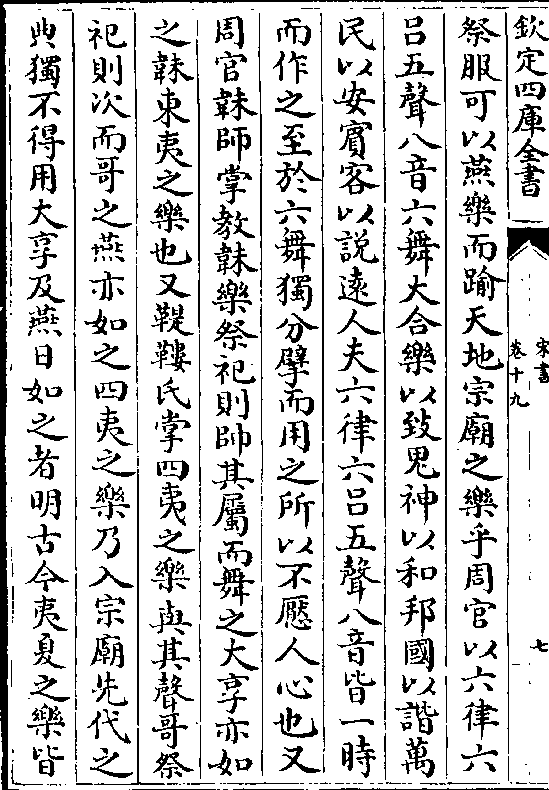 欽定四庫全書
宋書
卷十九
七
祭服可以燕樂而踰天地宗廟之樂乎周官以六律六
呂五聲八音六舞大合樂以致鬼神以和邦國以諧萬
民以安賓客以說遠人夫六律六呂五聲八音皆一時
而作之至於六舞獨分擘而用之所以不厭人心也又
周官韎師掌教韎樂祭祀則帥其屬而舞之大享亦如
之韎東夷之樂也又鞮鞻氏掌四夷之樂與其聲哥祭
祀則次而哥之燕亦如之四夷之樂乃入宗廟先代之
典獨不得用大享及燕日如之者明古今夷夏之樂皆